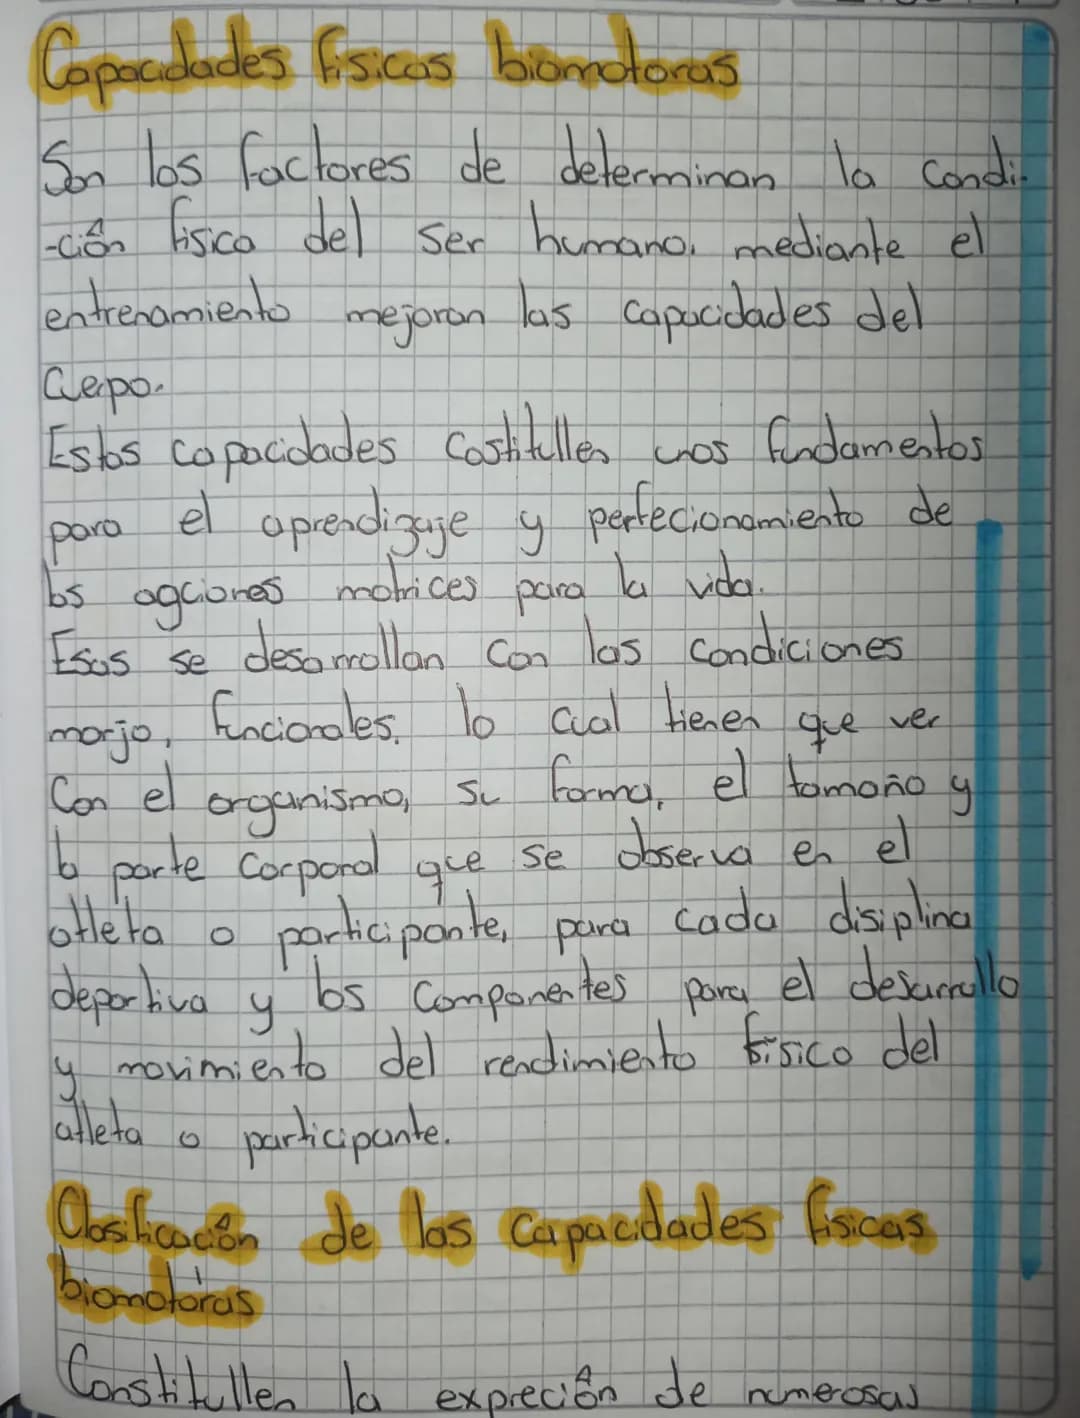 Capacidades físicas biomotoras
Son los factores de determinan la condi-
-ción física del ser humano, mediante el
entrenamiento mejoran las capacidades del
cuerpo.
Estas capacidades costitullen unos fundamentos
para el aprendizaje y perfecionamiento de
las agciones motrices para la vida.
Esas se desarrollan con las condiciones
morjo, funcionales, lo cual tienen que ver
con el organismo, su forma, el tamaño y
la parte corporal que se observa en el
atleta o participante, para cada disiplina
deportiva y los componentes para el desarrollo
y movimiento del rendimiento físico del
atleta o participante.
Clasificación de las capacidades físicas
biomotoras
Constitullen la expreción de numerosas